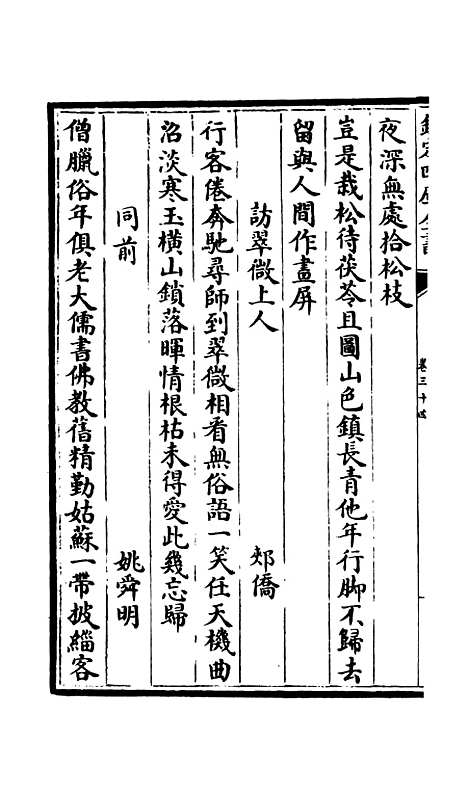 欽定四庫全書
卷三十四
夜深無處拾松枝
豈是栽松待茯苓且圖山色鎮長青他年行脚不歸去
留與人間作畫屏
訪翠微上人 郟僑
行客倦奔馳尋師到翠微相看無俗語一笑任天機曲
沼淡寒玉橫山鎖落暉情根枯未得愛此幾忘歸
同前 姚舜明
僧臘俗年俱老大儒書佛教舊精勤姑蘇一帶披緇客